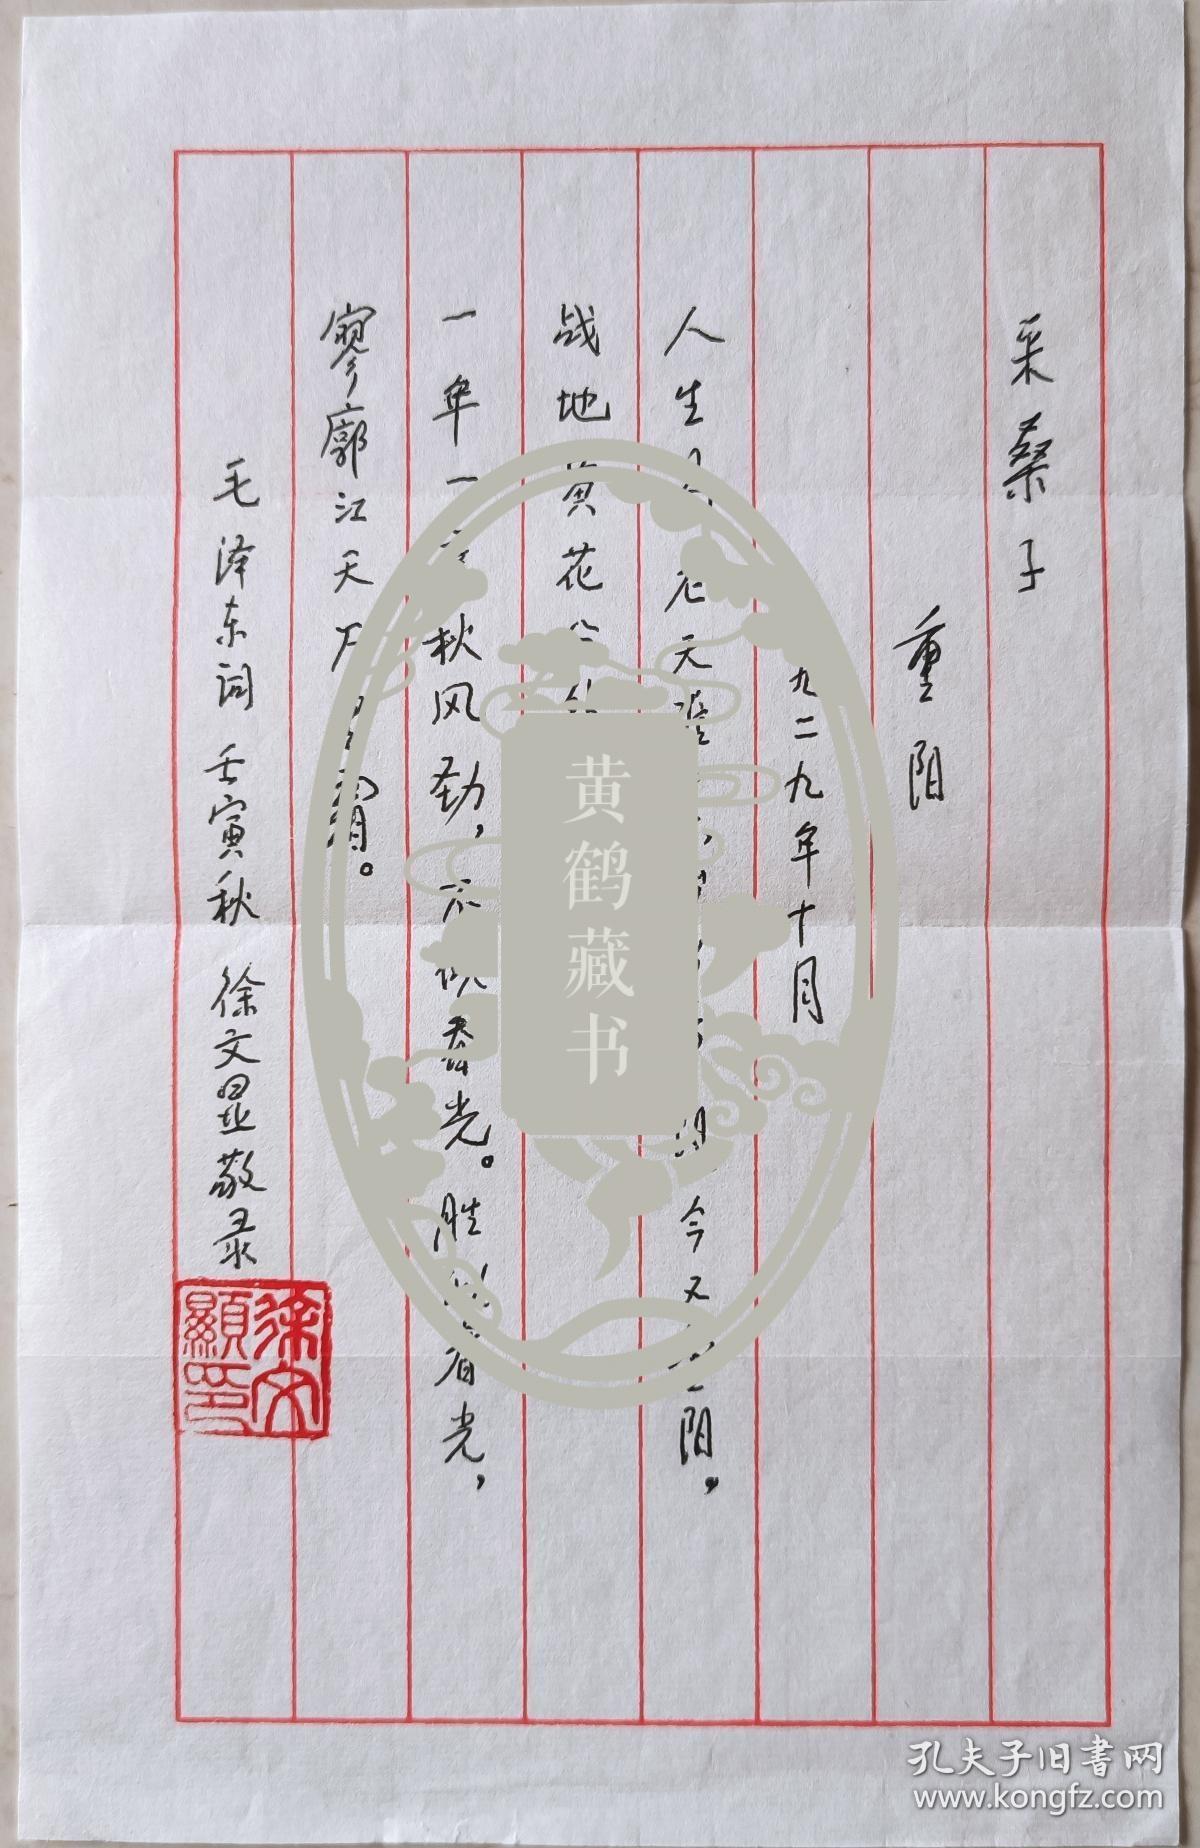 采桑子
重阳
九二九年十月
人生 老天 今又 阳。
战地黄花
一年一 秋风劲，不似春光。胜似春光，
寥廓江天万 霜。
毛泽东词 壬寅秋 徐文显敬录
徐文顯印
黄鹤藏书
孔夫子旧书网
www.kongfz.com